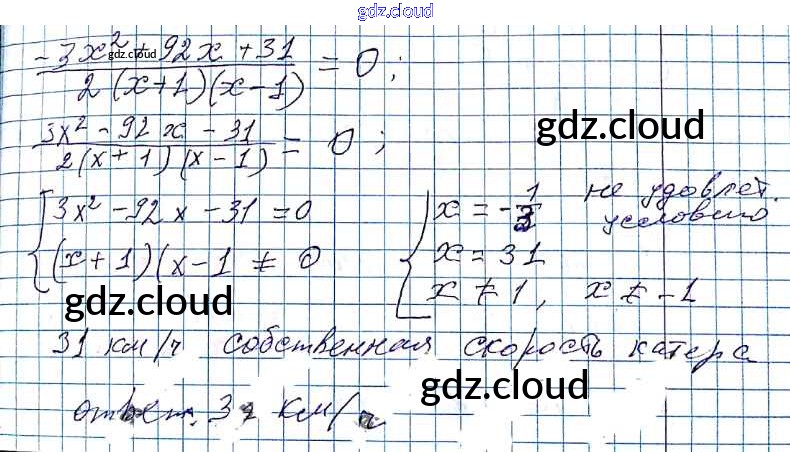 gdz.cloud
-3x² + 92x + 31 / 2(x+1)(x-1) = 0;
gdz.cloud
3x² - 92x - 31 / 2(x+1)(x-1) = 0;
gdz.cloud
3x² - 92x - 31 = 0
(x+1)(x-1 ≠ 0
x = -1/3 не удовлет. условию
x = 31
x ≠ 1, x ≠ -1
gdz.cloud
31 км/ч собственная скорость катера
gdz.cloud
ответ. 31 км/ч